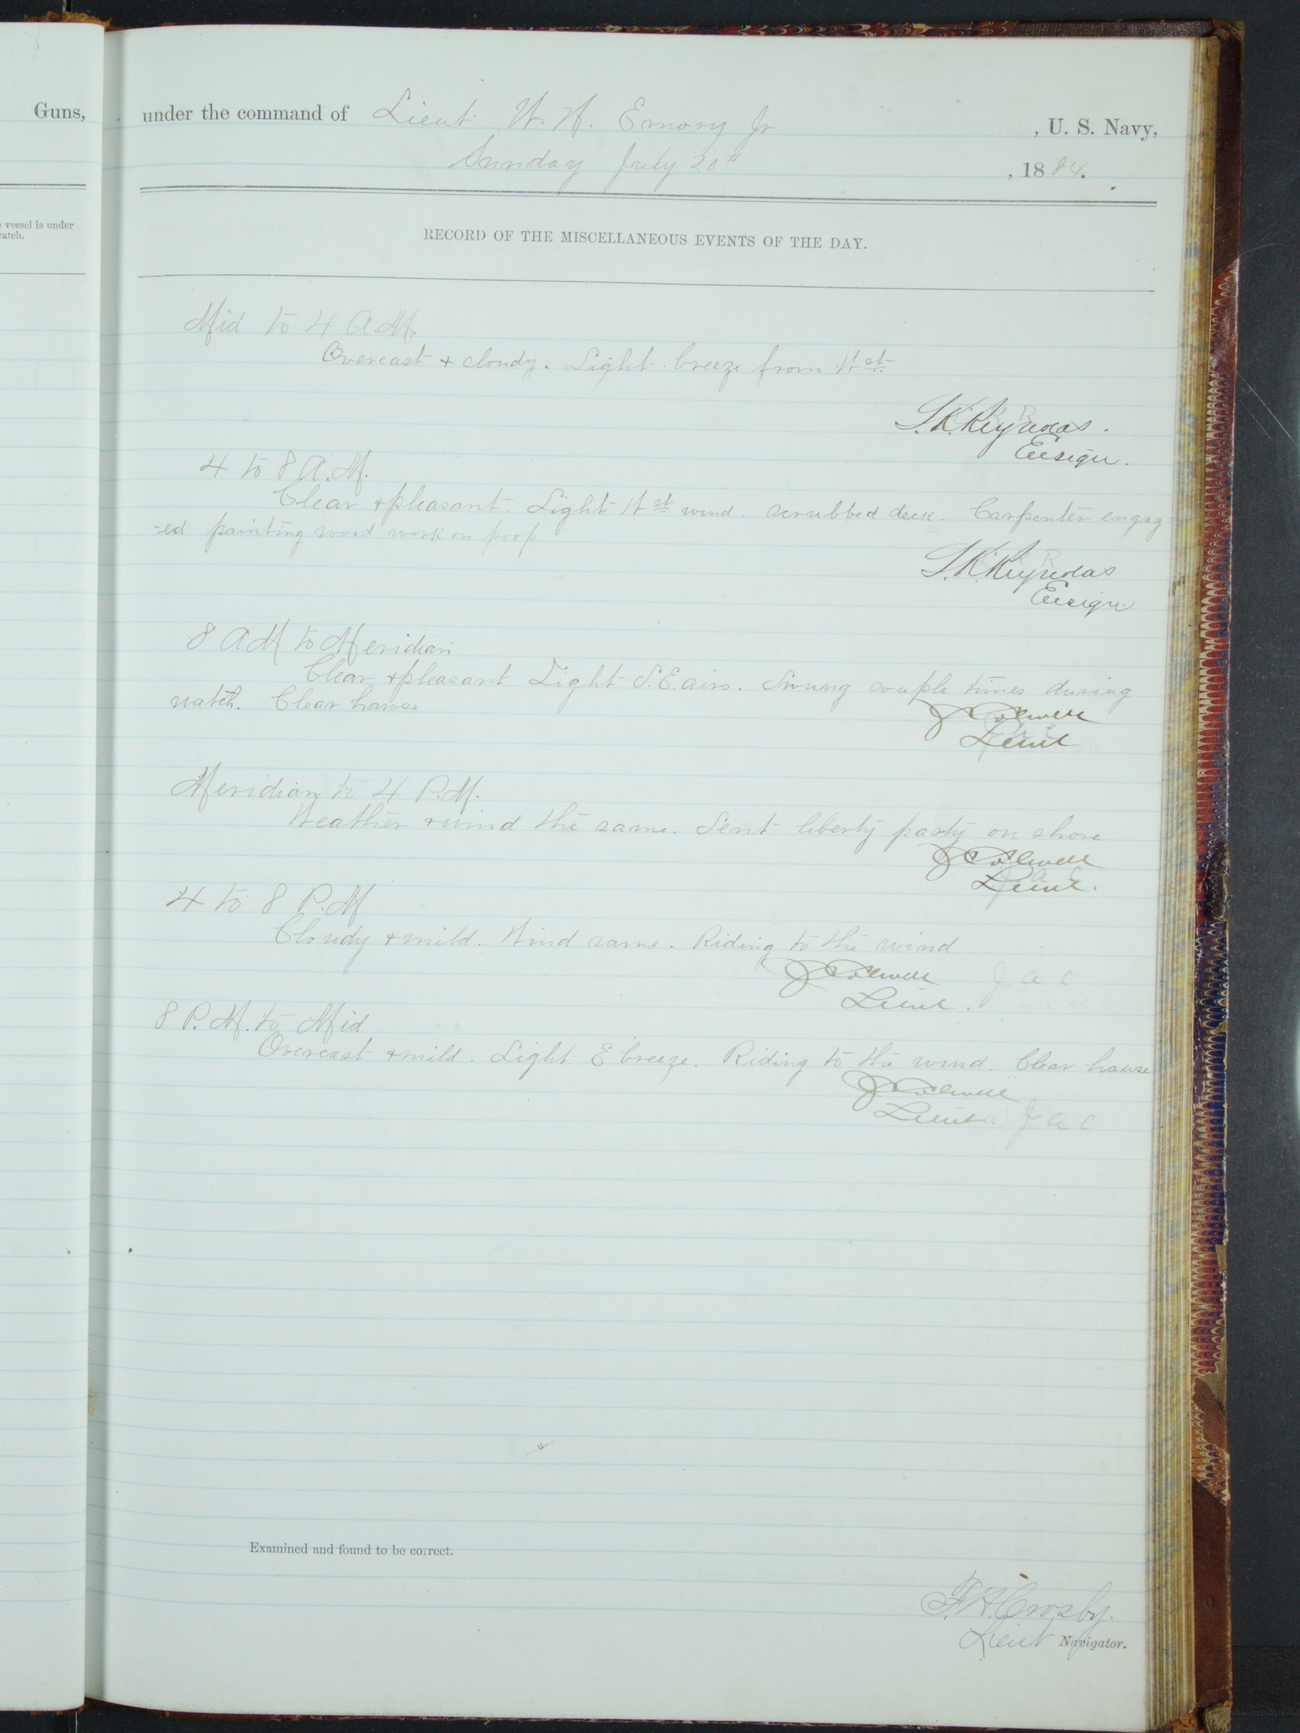 Guns,
under the command of Lieut. W. H. Emory Jr , U. S. Navy,
Sunday July 20th , 1884.
e vessel is under
vatch.
RECORD OF THE MISCELLANEOUS EVENTS OF THE DAY.
Mid to 4 A.M.
Overcast + cloudy. Light breeze from Wst.
L.K. Reynolds.
Ensign.
4 to 8 A.M.
Clear + pleasant Light Wst wind. scrubbed deck. Carpenter engag
-ed painting wood work on poop
L.K. Reynolds
Ensign
8 AM to Meridian
Clear + pleasant Light S.E. airs. Swung couple times during
watch. Clear hawse
J A Colwell
Lieut
Meridian to 4 P.M.
Weather + wind the same. Sent liberty party on shore
J A Colwell
Lieut.
4 to 8 P.M.
Cloudy + mild. Wind same. Riding to the wind
J Colwell J a C
Lieut.
8 P.M. to Mid
Overcast + mild. Light E breeze. Riding to the wind. Clear hawse
J Colwell
Lieut. J a C
Examined and found to be correct.
F. H. Crosby.
Lieut Navigator.